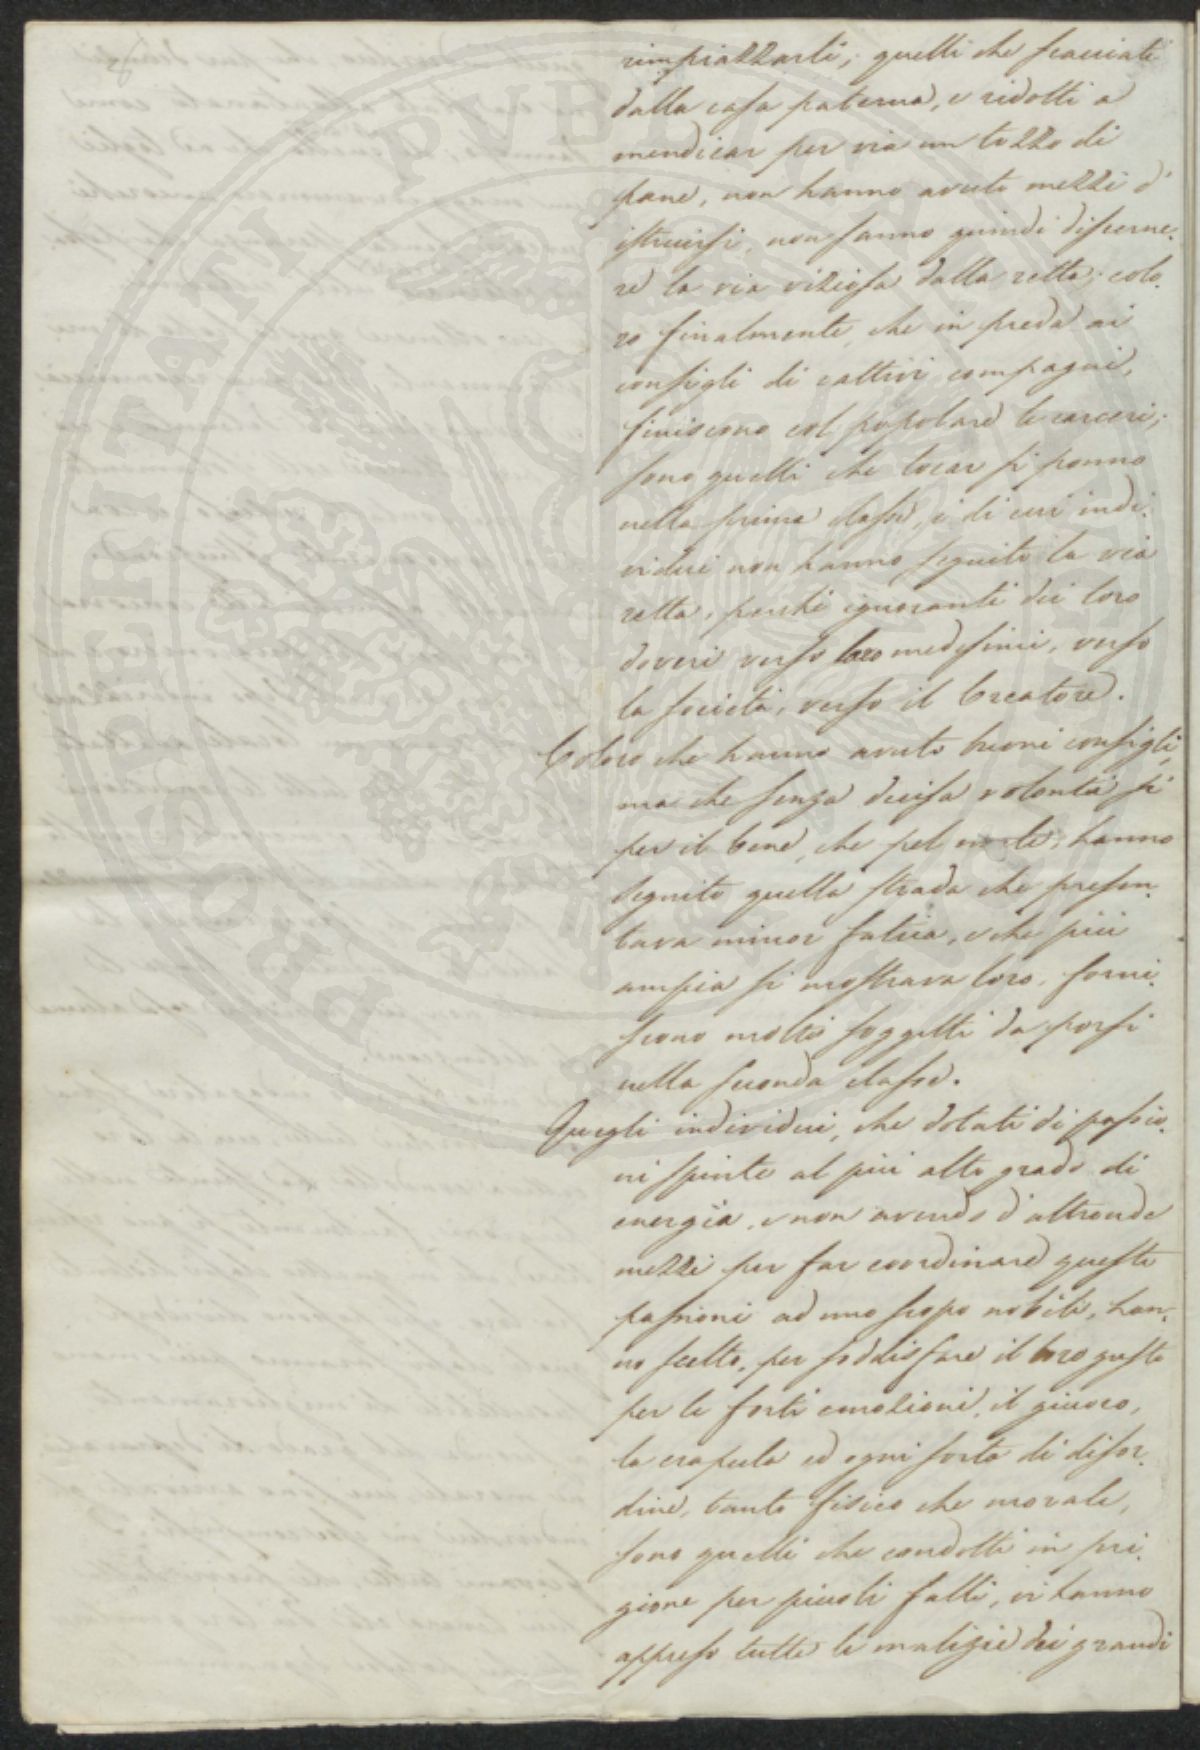 rimpiazzarli; quelli che scacciati
dalla casa paterna, e ridotti a
mendicar per via un tozzo di
pane, non hanno avuto mezzi d'
istruirsi, non sanno quindi discerne-
re la via viziosa dalla retta; colo-
ro finalmente, che in preda ai
consigli di cattivi compagni,
finiscono col popolare le carceri;
sono quelli che locar si ponno
nella prima classe, i di cui indi-
vidui non hanno seguito la via
retta, perchè ignoranti dei loro
doveri verso loro medesimi, verso
la società, verso il Creatore.
Coloro che hanno avuto buoni consigli,
ma che senza decisa volontà sì
per il bene, che pel male, hanno
seguito quella strada che presen-
tava minor fatica, e che più
ampia si mostrava loro, forni-
scono molti soggetti da porsi
nella seconda classe.
Quegli individui, che dotati di passio-
ni spinte al più alto grado di
energia, e non avendo d'altronde
mezzi per far coordinare queste
passioni ad uno scopo nobile, han-
no scelto, per soddisfare il loro gusto
per le forti emozioni, il giuoco,
la crapula ed ogni sorta di disor-
dine, tanto fisico che morale,
sono quelli che condotti in pri-
gione per piccoli falli, vi hanno
appreso tutte le malizie dei grandi
PROSPERITATI PVBLICAE